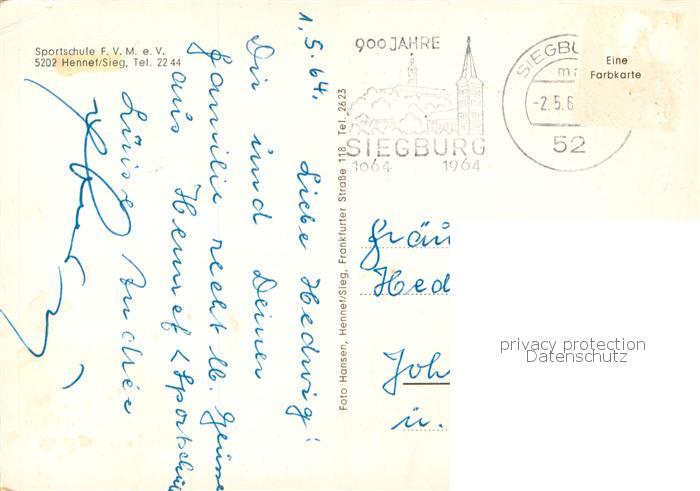 Sportschule F. V. M. e. V.
5202 Hennef/Sieg, Tel. 22 44
1.5.64.
Liebe Hedwig!
Dir und Deiner
Familie recht lb. Grüsse
aus Hennef (Sportschu
900 JAHRE
SIEGBURG
1064 1964
SIEGBU
-2.5.6
52
Eine
Farbkarte
Foto Hansen, Hennef/Sieg, Frankfurter Straße 118 Tel. 2623
Fräu
Hed
Joh
u.
privacy protection
Datenschutz